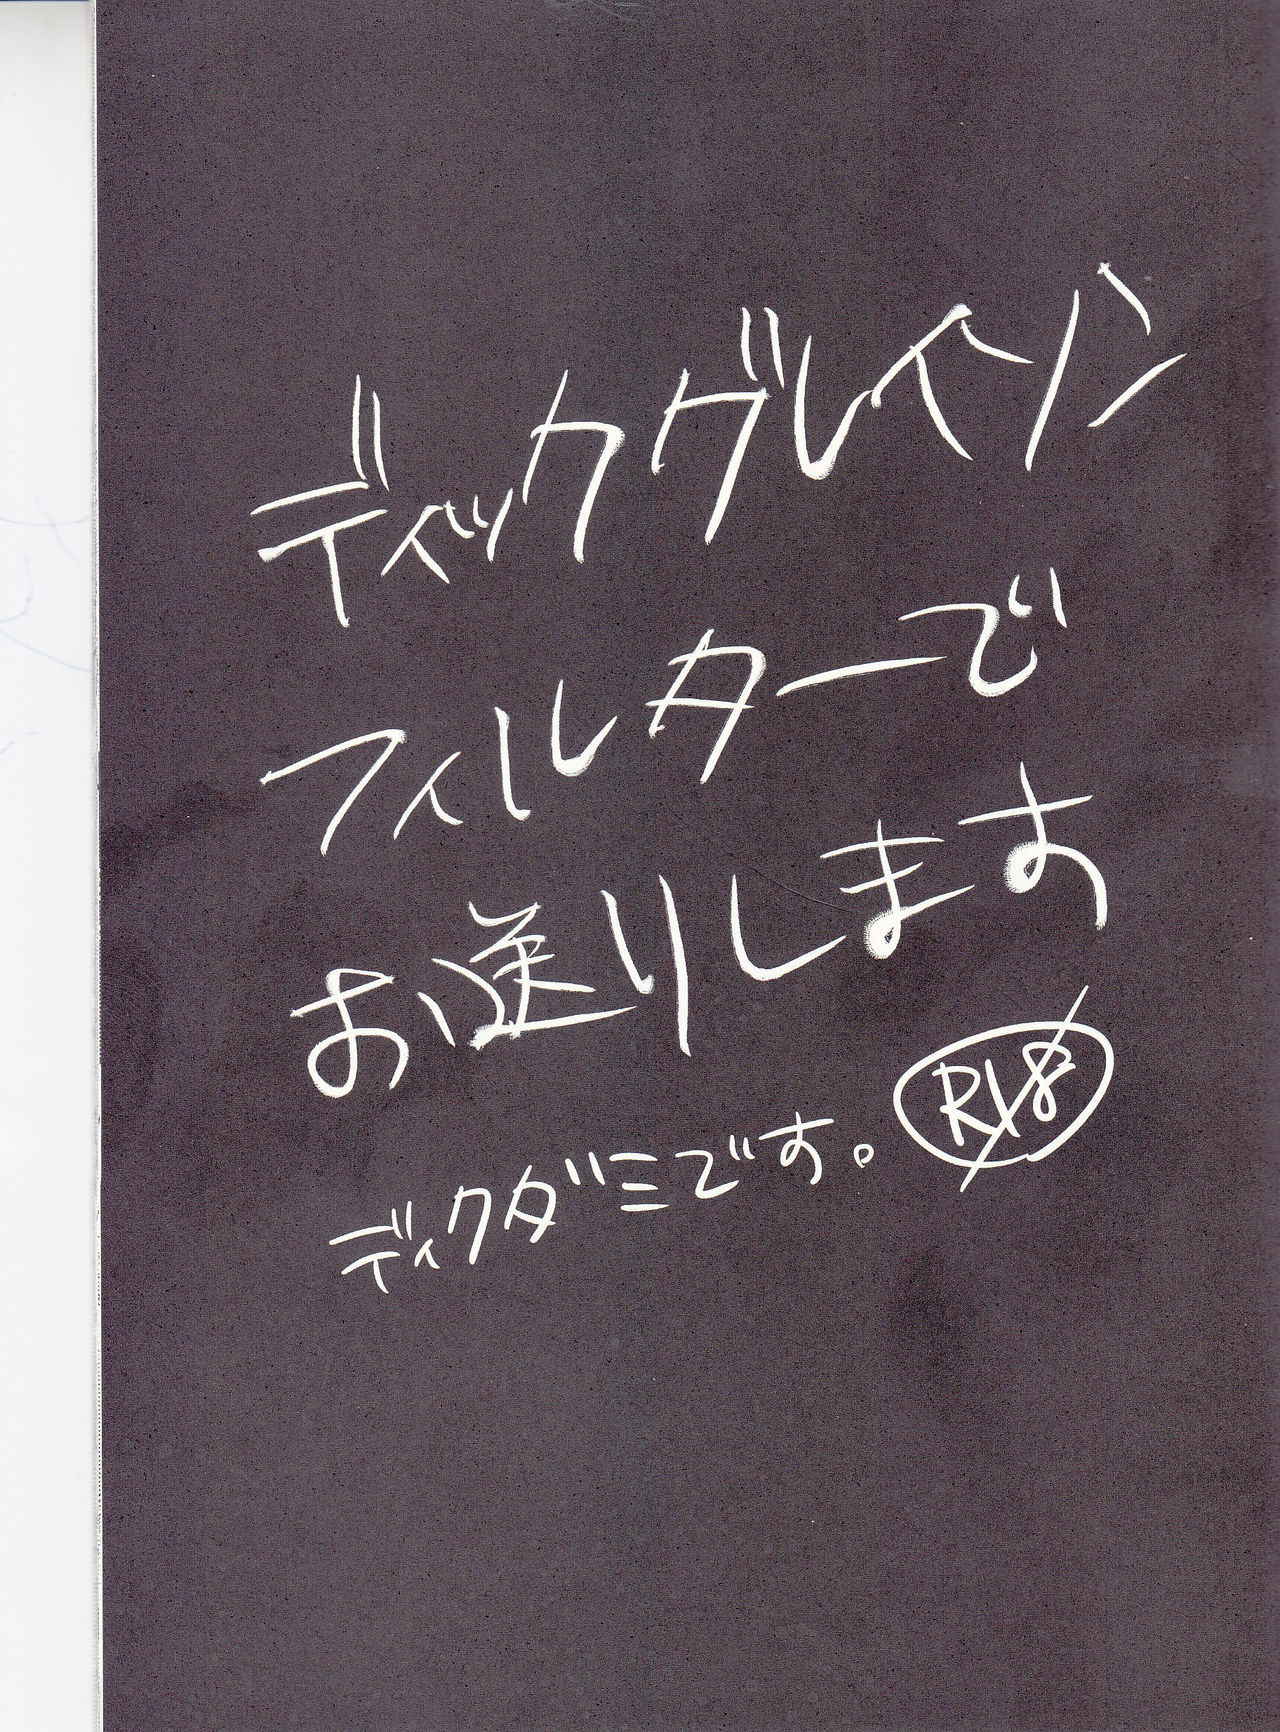 ディックグレイソン
フィルターで
お送りします
ディクダミです。
R18